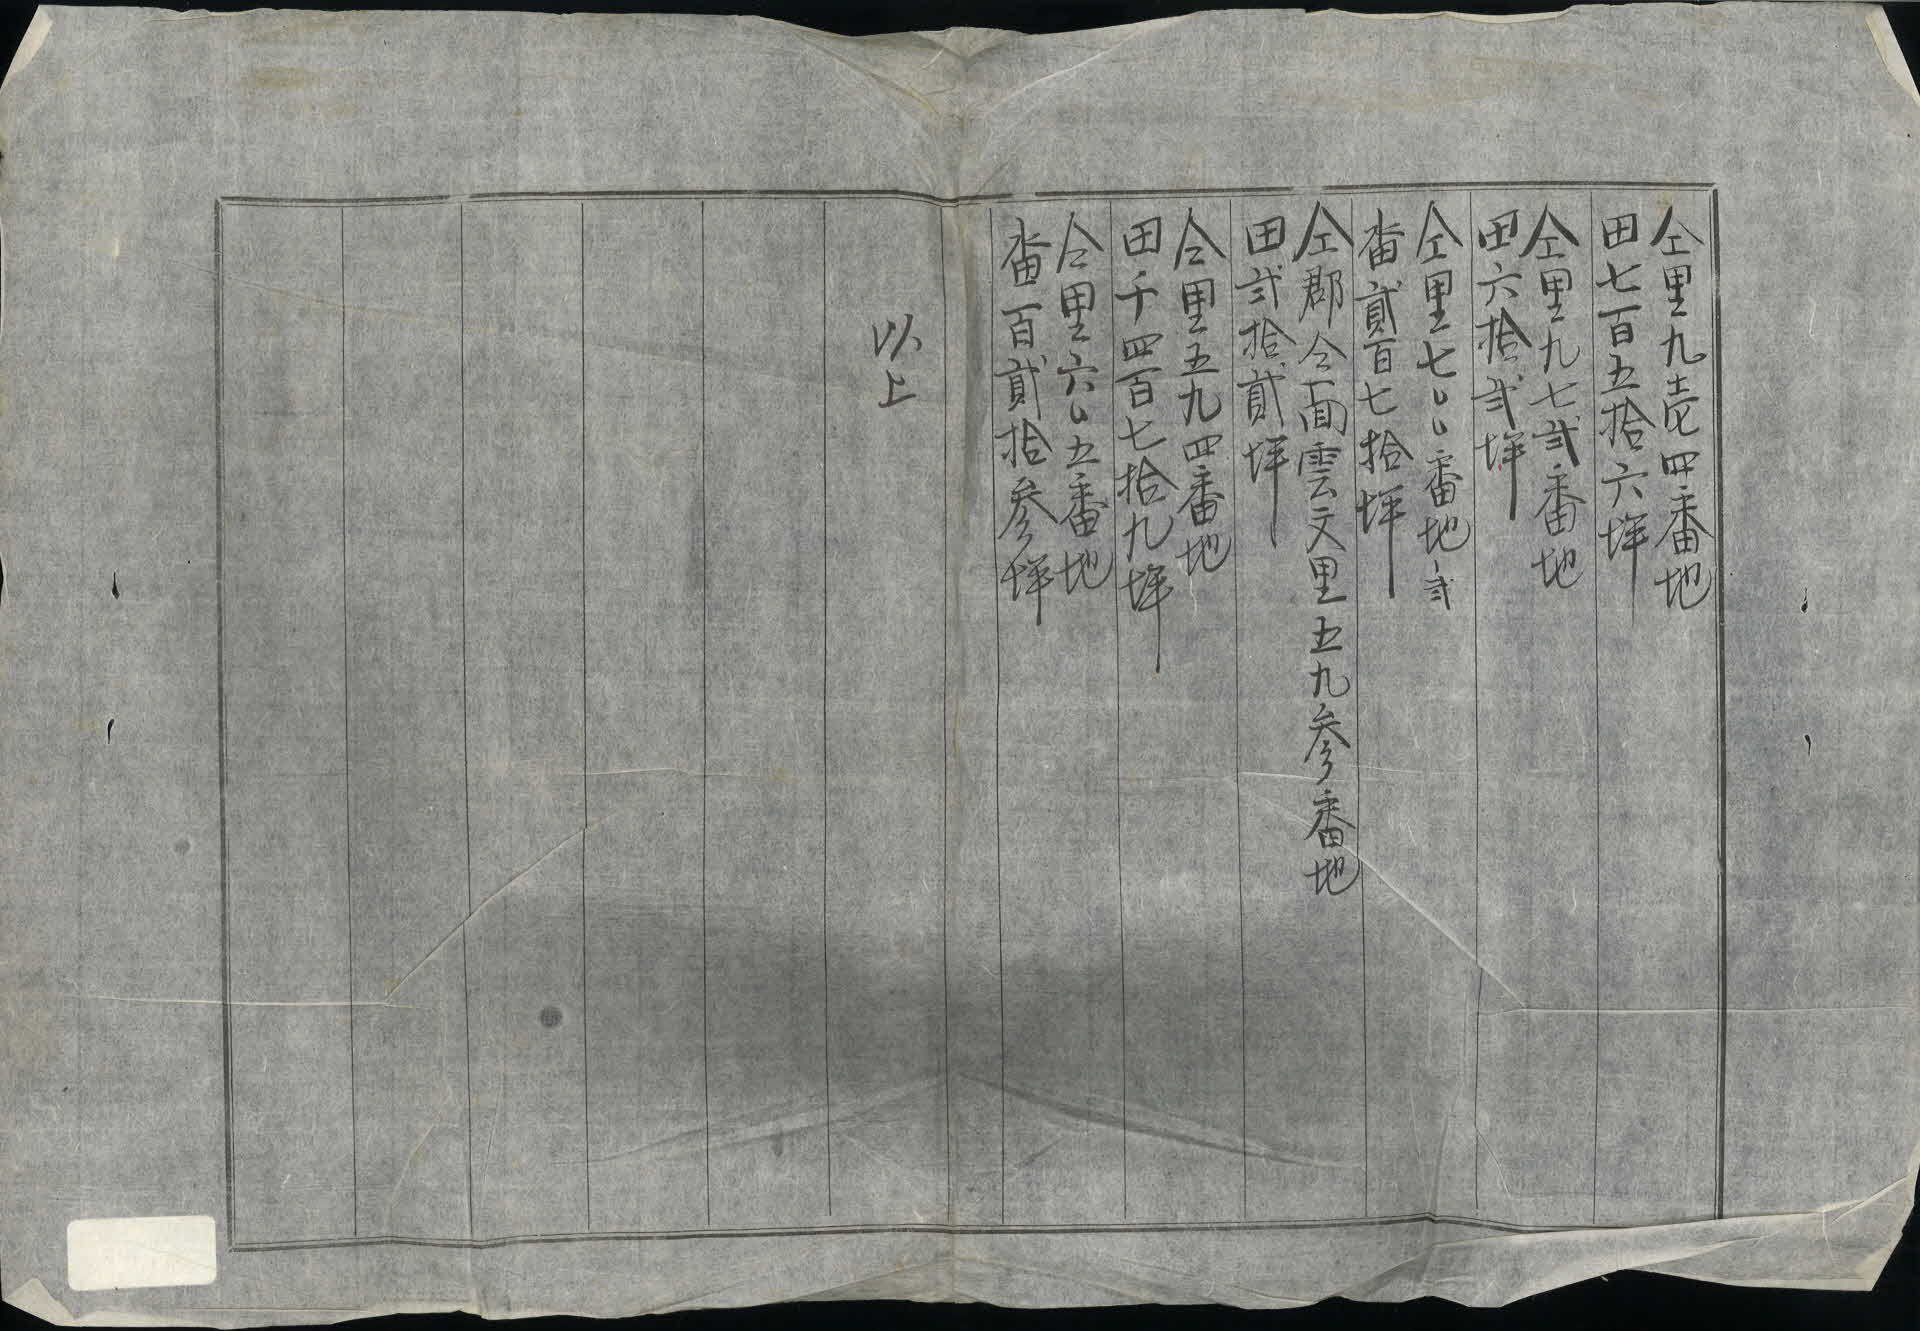 仝里九壱四番地
田七百五拾六坪
仝里九七弐番地
田六拾弐坪
仝里七〇〇番地ノ弐
畓貳百七拾坪
仝郡仝面雲文里五九参番地
田弐拾貳坪
仝里五九四番地
田千四百七拾九坪
仝里六〇五番地
畓一百貳拾参坪
以上